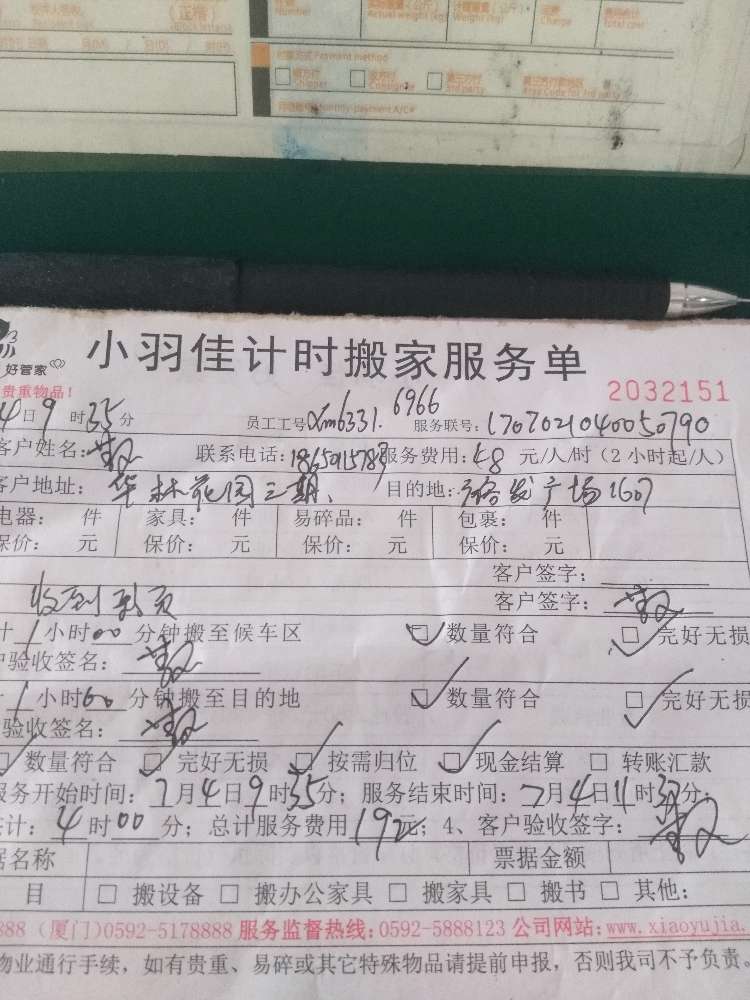 Number
Actual weight (kg)
Weight (kg)
Charge
Total cost
(正楷)
(block letters)
付款方式 Payment method
寄方付
Shipper
收方付
Consignee
第三方付
3rd party
Area Code for 3rd party
Monthly payment A/C#
小羽佳计时搬家服务单
好管家
贵重物品!
2032151
4日9时35分
员工工号 Xm6331. 6966
服务联号: 1707021040050790
客户姓名:
联系电话: 1865915783
服务费用: 48 元/人/时 (2小时起/人)
客户地址: 华林花园三期、
目的地: 裕发广场1607
电器: 件 家具: 件 易碎品: 件 包裹: 件
保价: 元 保价: 元 保价: 元 保价: 元
客户签字:
收到
客户签字:
计 1 小时 00 分钟搬至候车区 数量符合 完好无损
户验收签名:
计 1 小时 60 分钟搬至目的地 数量符合 完好无损
验收签名:
数量符合 完好无损 按需归位 现金结算 转账汇款
服务开始时间: 7月4日9时35分; 服务结束时间: 7月4日11时37分;
总计: 4时00分; 总计服务费用 192元; 4、客户验收签字:
据名称 票据金额
目 搬设备 搬办公家具 搬家具 搬书 其他:
888 (厦门)0592-5178888 服务监督热线:0592-5888123 公司网站:www.xiaoyujia.
物业通行手续, 如有贵重、易碎或其它特殊物品请提前申报, 否则我司不予负责。